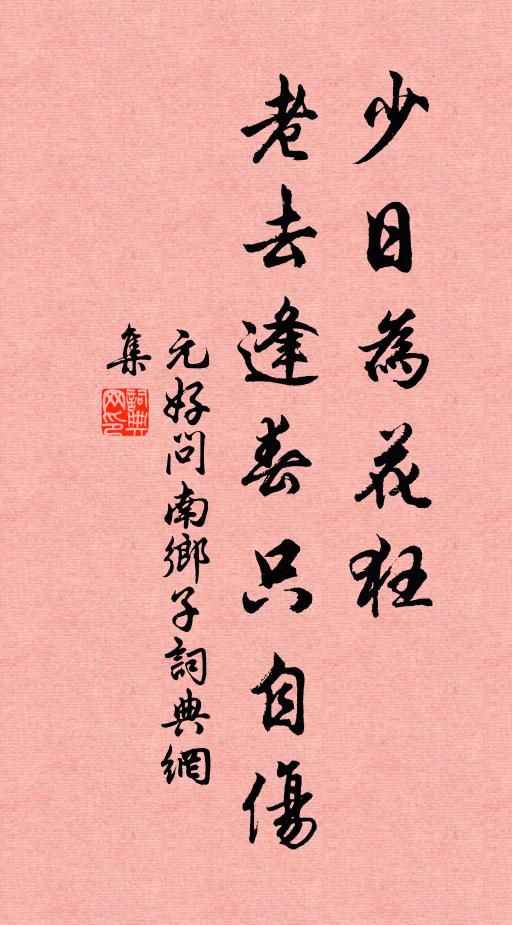 少日為花狂
老去逢春只自傷
元好問南鄉子詞典網
集
詞典網印